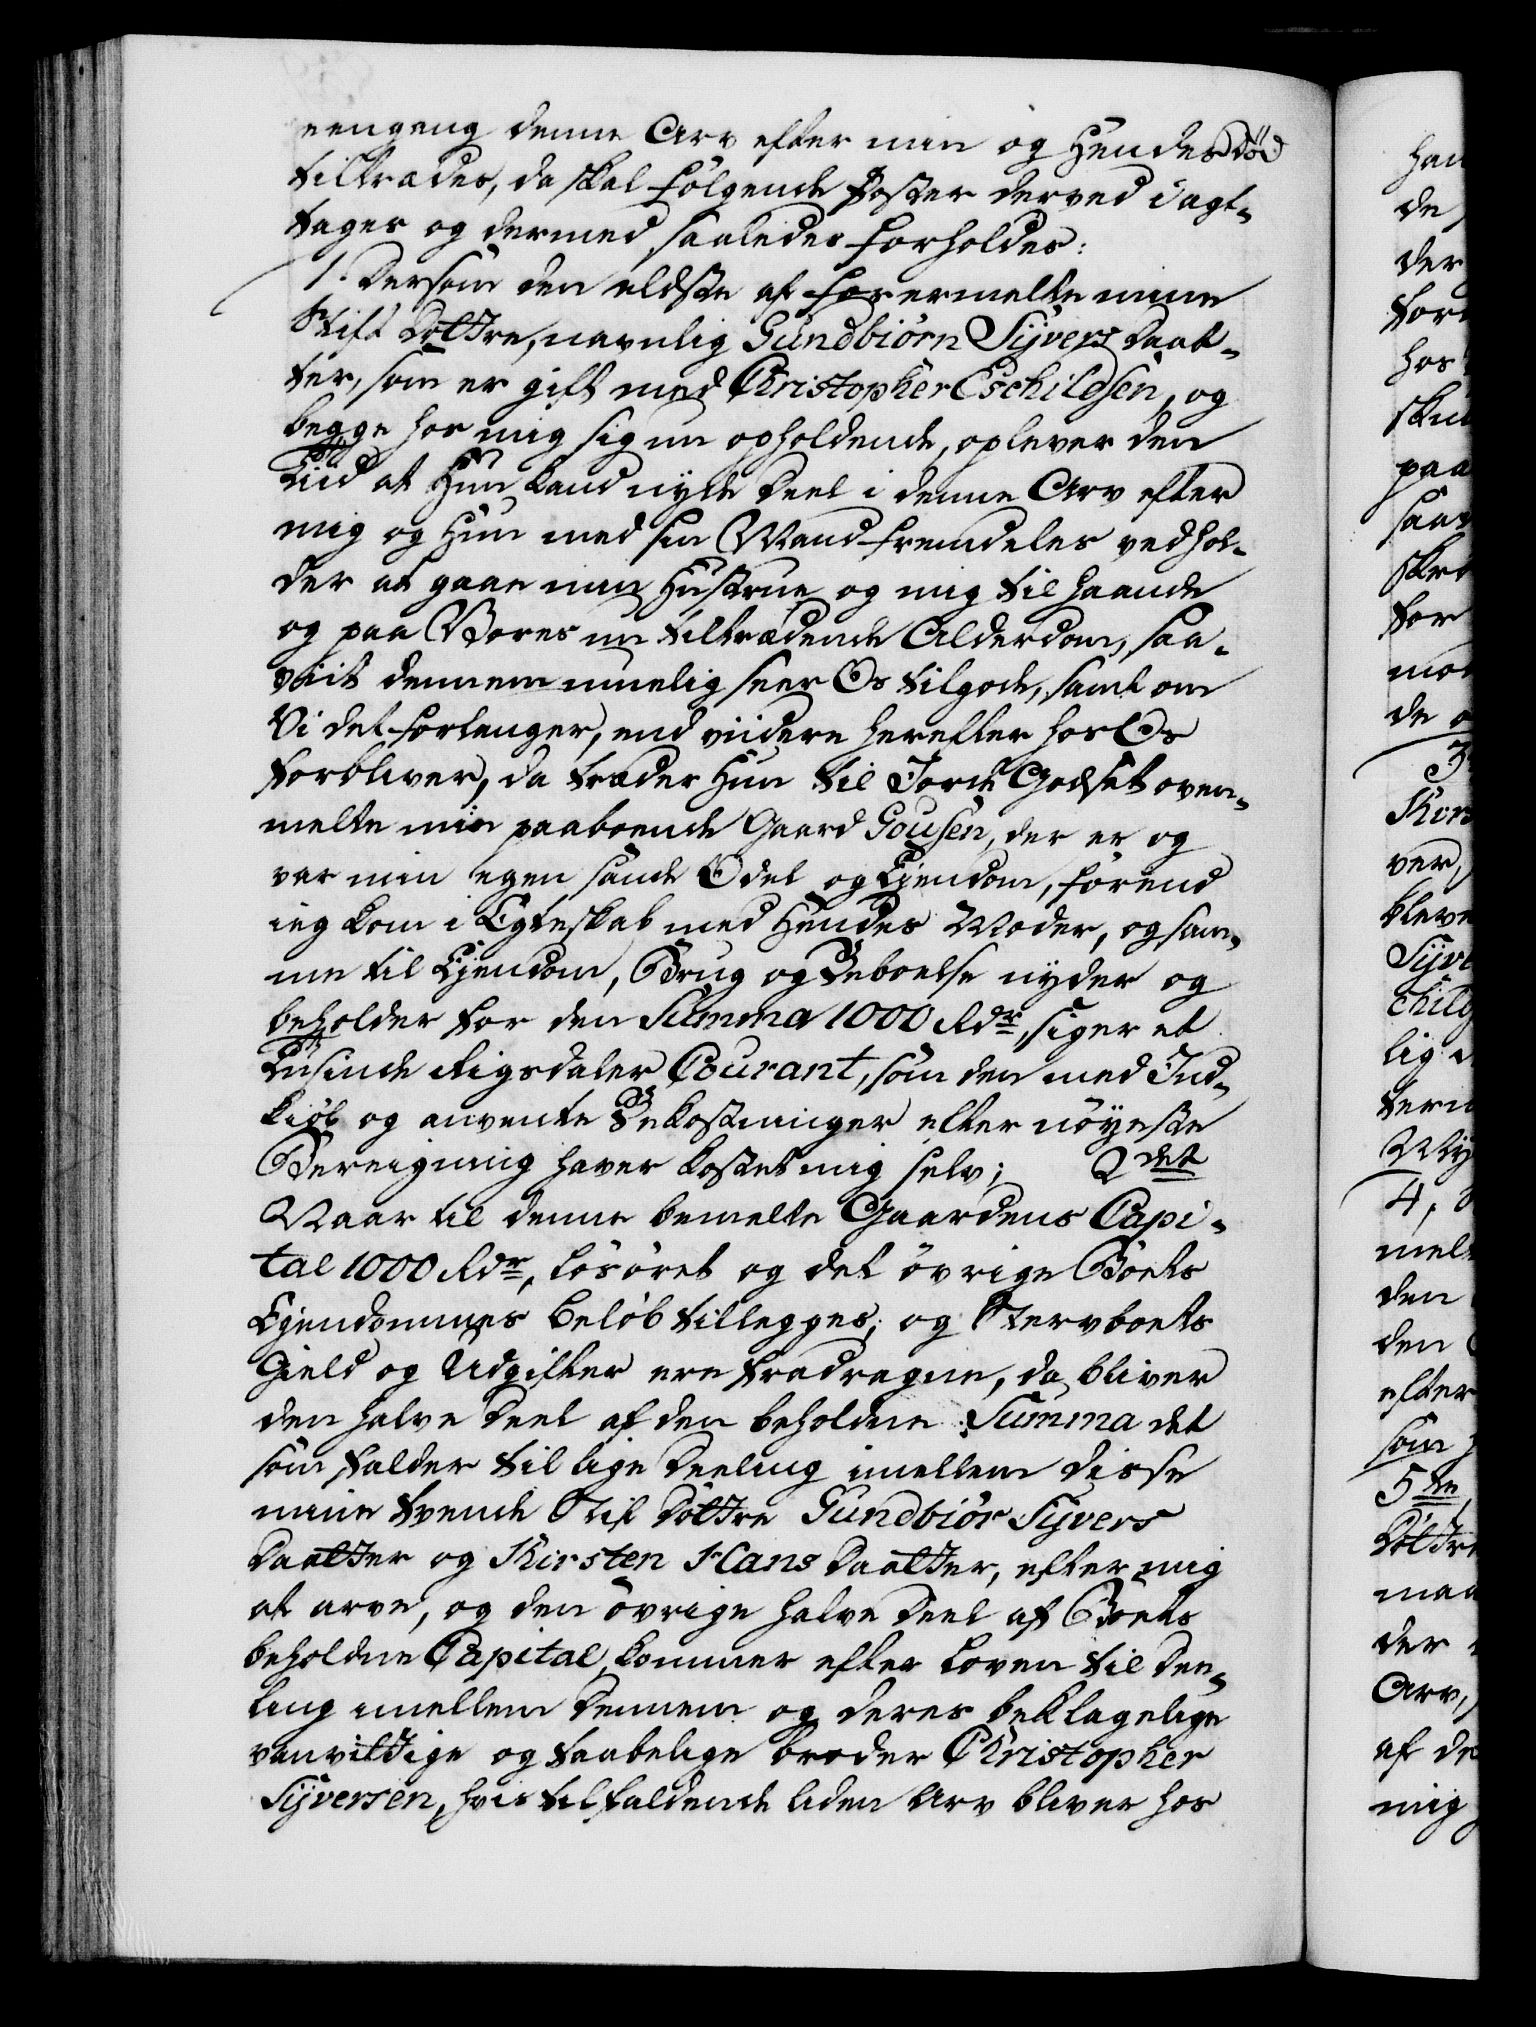 eengang denne Arv efter min og Hendes Död
tiltrædes, da skal fölgende Poster derved i agt-
tages og dermed saaledes forholdes:
1. Dersom den eldste af forermelte mine
Stif Döttre, navnlig Gundbiörn Sÿvers Daat-
ter, som er gift med Christopher Eschildsen, og
begge hos mig sig nu opholdende, oplever den
Tiid at Hun kand nyde Deel i denne Arv efter
mig og Hun med sin Mand fremdeles vedhol-
der at gaae min Hustrue og mig til haande
og paa Vores nu tiltrædende Alderdom, saa-
viit dennem muelig seer Os tilgode, samt om
Vi det forlanger, end viidere herefter hos Os
forbliver, da træder Hun til Jorde Godset oven-
melte min paaboende Gaard Gousen, der er og
var min egen sande Odel og Ejendom, förend
ieg kom i Egteskab med Hendes Moder, og sam-
me til Ejendom, Brug og Beboelse nyder og
beholder for den Summa 1000 Rdr, siger et
Tusinde Rigsdaler Courant, som den med Ind-
kiöb og anvente Bekostninger efter nöyeste
Bereigning haver kostet mig selv; 2det
Naar til denne bemelte Gaardens Capi-
tal 1000 Rdr, Lösöret og det övrige Boets
Ejendommes Belöb tillegges, og Stervboets
Gield og Udgifter ere fradragne, da bliver
den halve Deel af den beholdne Summa det
som falder til lige Deeling imellem disse
mine tvende Stif Döttre Gundbiör Sÿvers
Daatter og Kirsten Hans Daatter, efter mig
at arve, og den övrige halve Deel af Boets
beholdne Capital, kommer efter Loven til Dee-
ling imellem Dennem og deres beklagelige
vanvittige og taabelige broder Christopher
Sÿversen, hvis tilfaldende liden Arv bliver hos